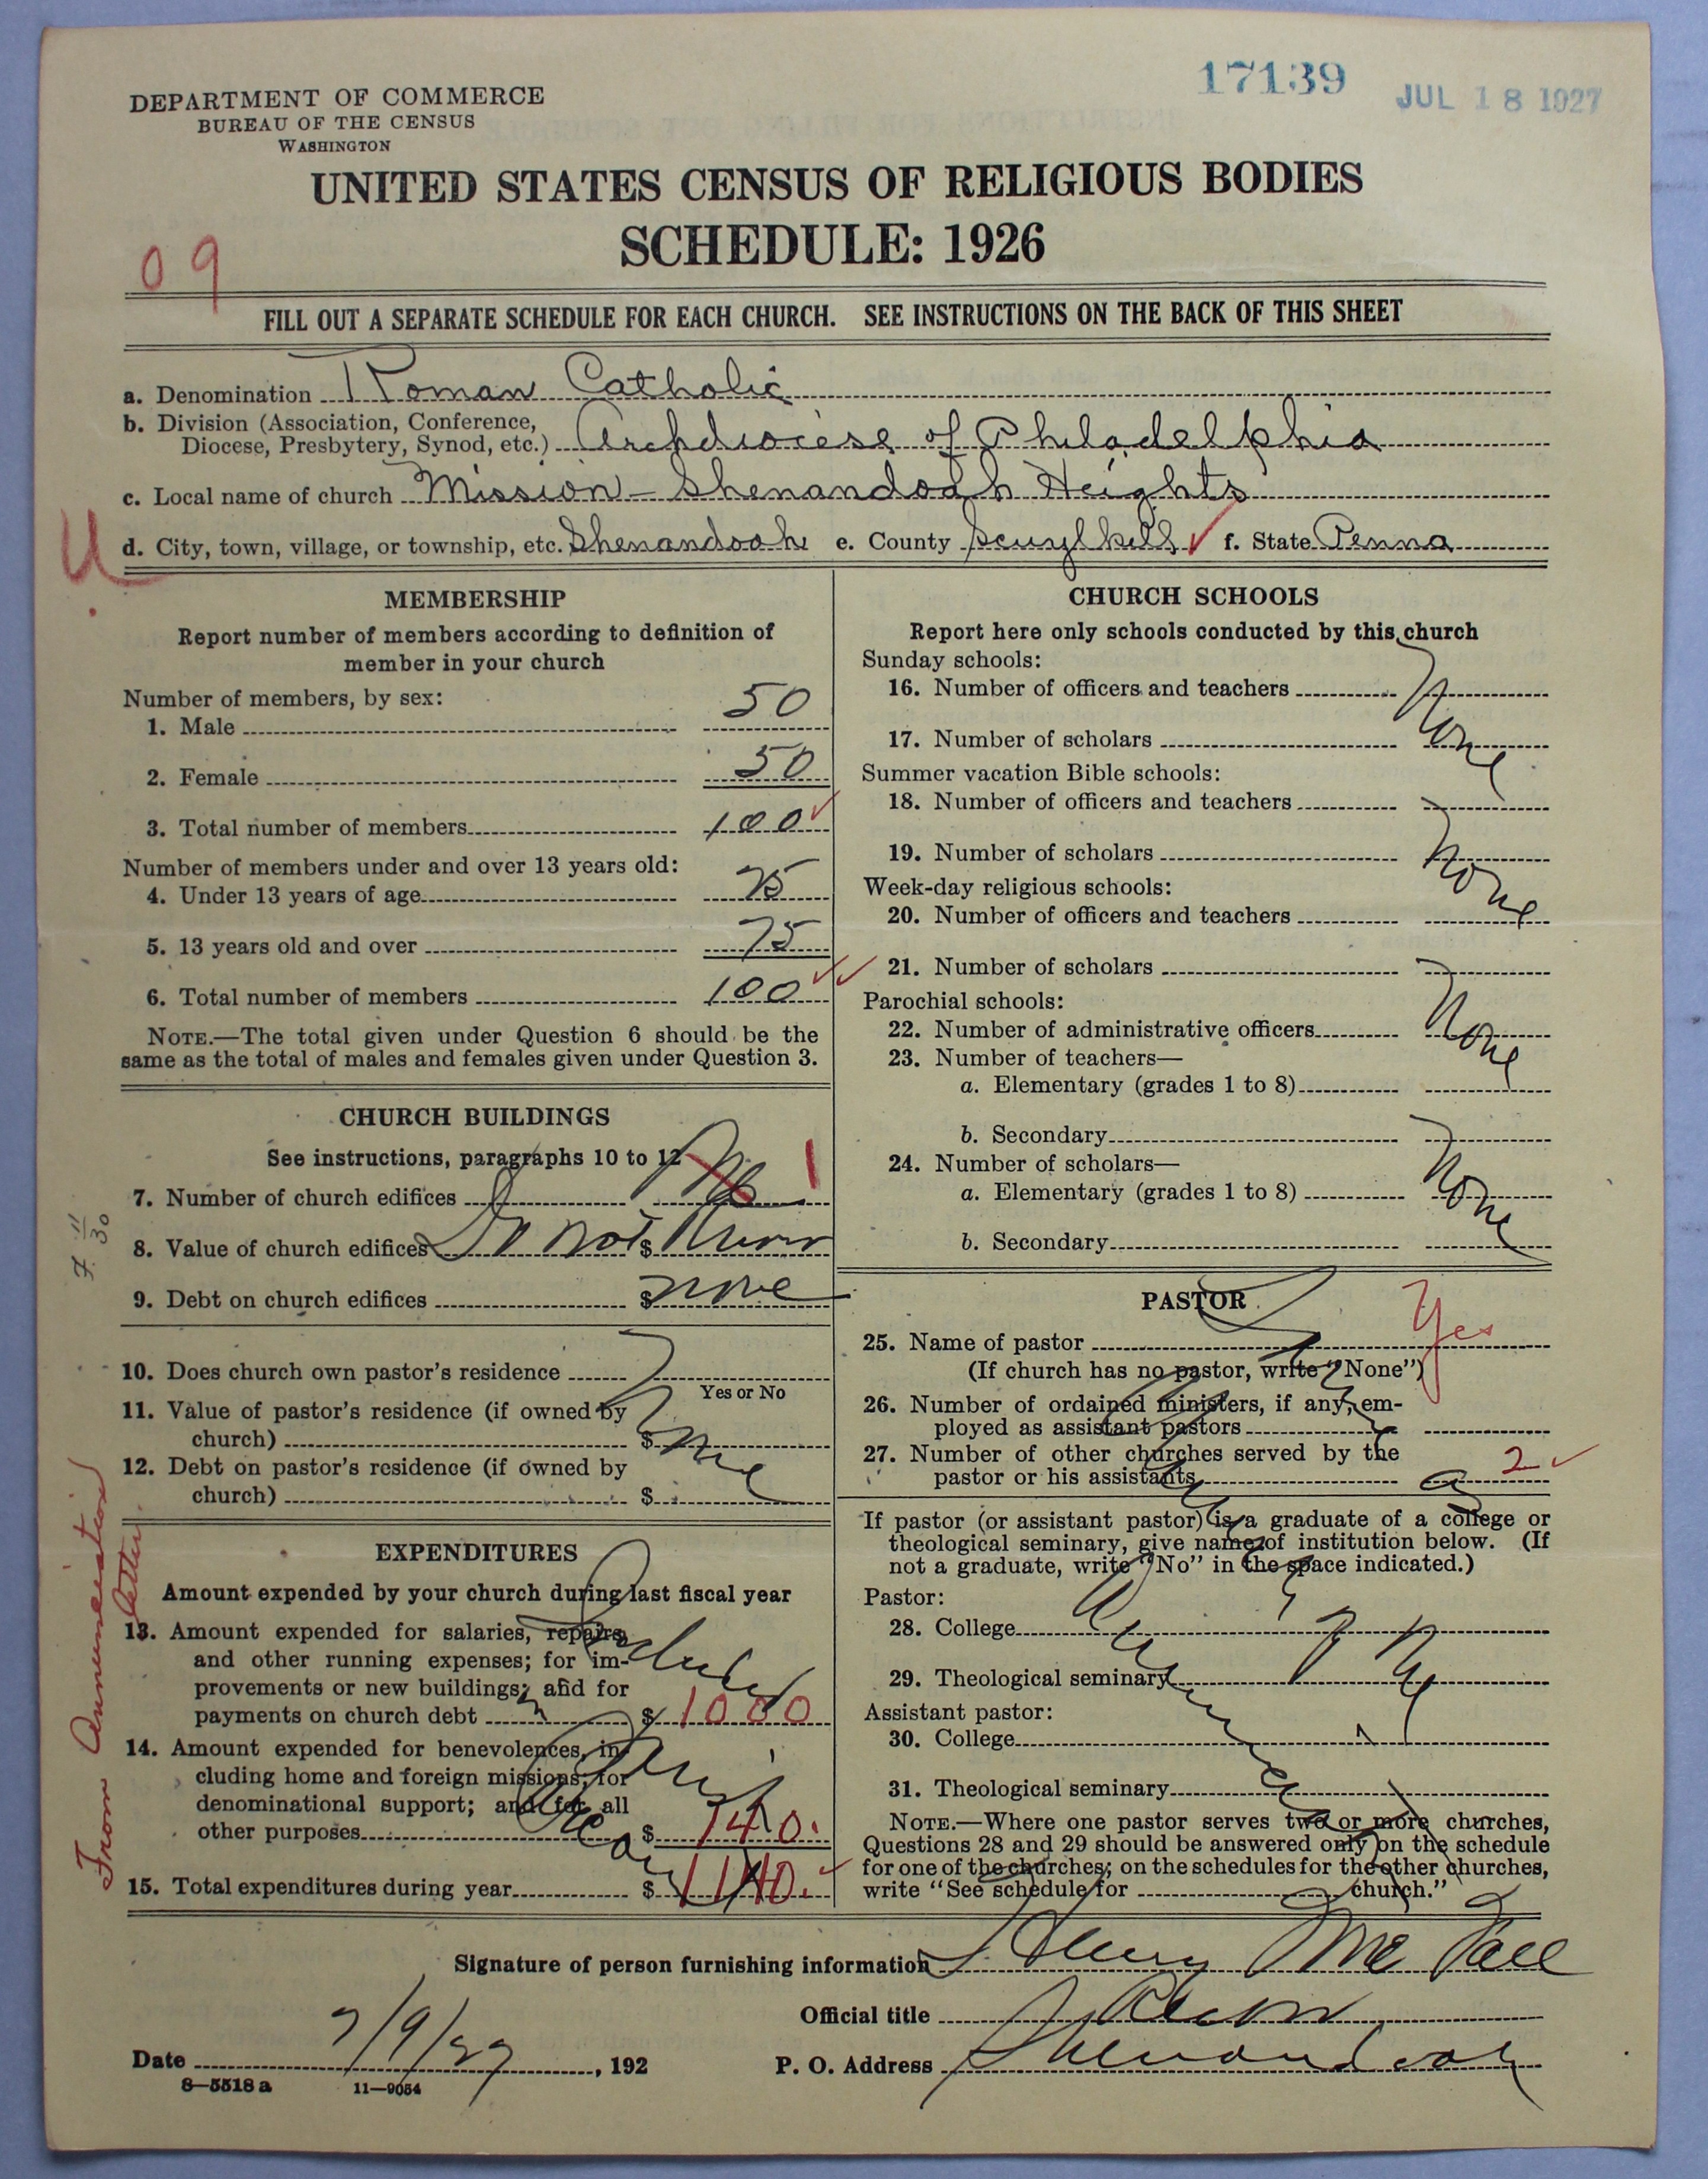 17139
JUL 18 1927
DEPARTMENT OF COMMERCE
BUREAU OF THE CENSUS
WASHINGTON
UNITED STATES CENSUS OF RELIGIOUS BODIES
SCHEDULE: 1926
09
FILL OUT A SEPARATE SCHEDULE FOR EACH CHURCH. SEE INSTRUCTIONS ON THE BACK OF THIS SHEET
a. Denomination Roman Catholic
b. Division (Association, Conference,
Diocese, Presbytery, Synod, etc.) Archdiocese of Philadelphia
c. Local name of church Mission - Shenandoah Heights
U
d. City, town, village, or township, etc. Shenandoah e. County Scuylkill f. State Penna
MEMBERSHIP
Report number of members according to definition of
member in your church
Number of members, by sex:
1. Male 50
2. Female 50
3. Total number of members 100
Number of members under and over 13 years old:
4. Under 13 years of age 25
5. 13 years old and over 75
6. Total number of members 100
NOTE.—The total given under Question 6 should be the
same as the total of males and females given under Question 3.
CHURCH BUILDINGS
See instructions, paragraphs 10 to 12
7. Number of church edifices No 1
8. Value of church edifices Do not $ Know
9. Debt on church edifices $ none
10. Does church own pastor's residence
Yes or No
11. Value of pastor's residence (if owned by
church) $ None
12. Debt on pastor's residence (if owned by
church) $
EXPENDITURES
Amount expended by your church during last fiscal year
13. Amount expended for salaries, repairs,
and other running expenses; for im-
provements or new buildings; and for
payments on church debt $ 1000
Included in
14. Amount expended for benevolences, in-
cluding home and foreign missions; for
denominational support; and for all
other purposes $ 140.
15. Total expenditures during year $ 1140.
From Annunciation letter.
CHURCH SCHOOLS
Report here only schools conducted by this church
Sunday schools:
16. Number of officers and teachers
None
17. Number of scholars
Summer vacation Bible schools:
18. Number of officers and teachers
None
19. Number of scholars
Week-day religious schools:
20. Number of officers and teachers
21. Number of scholars
None
Parochial schools:
22. Number of administrative officers
23. Number of teachers—
a. Elementary (grades 1 to 8)
b. Secondary
None
24. Number of scholars—
a. Elementary (grades 1 to 8)
b. Secondary
PASTOR
25. Name of pastor Yes
(If church has no pastor, write "None")
26. Number of ordained ministers, if any, em-
ployed as assistant pastors
27. Number of other churches served by the
pastor or his assistants 2
If pastor (or assistant pastor) is a graduate of a college or
theological seminary, give name of institution below. (If
not a graduate, write "No" in the space indicated.)
Pastor:
28. College
29. Theological seminary
Assistant pastor:
30. College
31. Theological seminary
NOTE.—Where one pastor serves two or more churches,
Questions 28 and 29 should be answered only on the schedule
for one of the churches; on the schedules for the other churches,
write "See schedule for church."
Signature of person furnishing information
Official title
Date 7/9/27, 192
P. O. Address Shenandoah
8—5518 a
11—9054